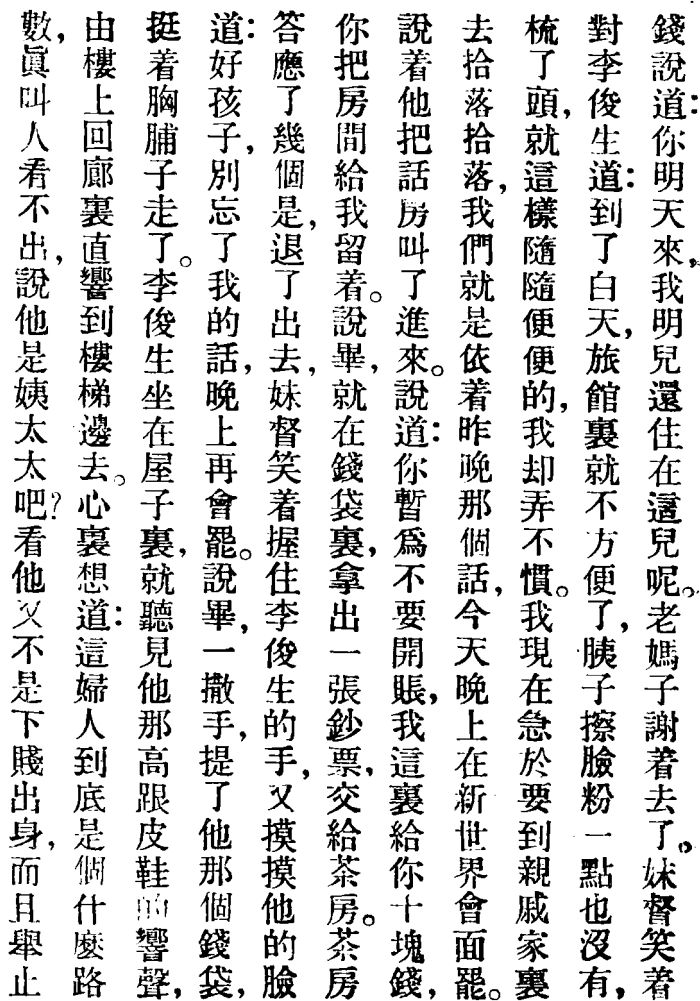 錢說道:你明天來,我明兒還住在這兒呢。老媽子謝着去了。妹督笑着
對李俊生道:到了白天,旅館裏就不方便了,胰子擦臉粉一點也沒有,
梳了頭,就這樣隨隨便便的,我却弄不慣。我現在急於要到親戚家裏
去拾落拾落,我們就是依着昨晚那個話,今天晚上在新世界會面罷。
說着他把話房叫了進來。說道:你暫爲不要開賬,我這裏給你十塊錢,
你把房間給我留着。說畢,就在錢袋裏,拿出一張鈔票,交給茶房。茶房
答應了幾個是,退了出去,妹督笑着握住李俊生的手,又摸摸他的臉
道:好孩子,別忘了我的話,晚上再會罷。說畢,一撒手,提了他那個錢袋,
挺着胸脯子走了。李俊生坐在屋子裏,就聽見他那高跟皮鞋的響聲,
由樓上回廊裏直響到樓梯邊去。心裏想道:這婦人到底是個什麽路
數,眞叫人看不出,說他是姨太太吧?看他又不是下賤出身,而且舉止